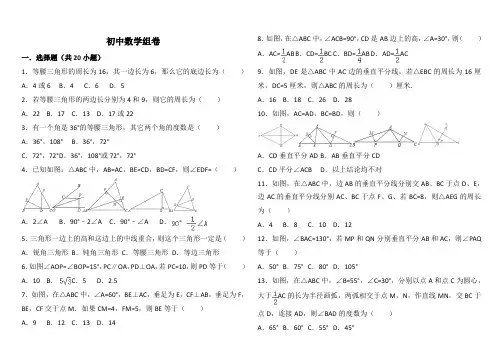 初中数学组卷
一．选择题（共20小题）
1．等腰三角形的周长为16，其一边长为6，那么它的底边长为（　　）
A．4或6　B．4　C．6　D．5
2．若等腰三角形的两边长分别为4和9，则它的周长为（　　）
A．22　B．17　C．13　D．17或22
3．有一个角是36°的等腰三角形，其它两个角的度数是（　　）
A．36°，108°　B．36°，72°
C．72°，72°D．36°，108°或72°，72°
4．已知如图：△ABC中，AB=AC，BE=CD，BD=CF，则∠EDF=（　　）
A．2∠A　B．90°﹣2∠A　C．90°﹣∠A　D．90°﹣1/2∠A
5．三角形一边上的高和这边上的中线重合，则这个三角形一定是（　　）
A．锐角三角形 B．钝角三角形 C．等腰三角形 D．等边三角形
6．如图∠AOP=∠BOP=15°，PC∥OA，PD⊥OA，若PC=10，则PD等于（　　）
A．10　B．5√3C．5　D．2.5
7．如图，在△ABC中，∠A=60°，BE⊥AC，垂足为E，CF⊥AB，垂足为F，
BE，CF交于点M．如果CM=4，FM=5，则BE等于（　　）
A．9　B．12　C．13　D．14
8．如图，在△ABC中，∠ACB=90°，CD是AB边上的高，∠A=30°，则（　　）
A．AC=1/2AB B．CD=1/2BC C．BD=1/4AB D．AD=1/2AC
9．如图，DE是△ABC中AC边的垂直平分线，若△EBC的周长为16厘
米，DC=5厘米，则△ABC的周长为（　　）厘米．
A．16　B．18　C．26　D．28
10．如图，AC=AD，BC=BD，则（　　）
A．CD垂直平分AD B．AB垂直平分CD
C．CD平分∠ACB　D．以上结论均不对
11．如图，在△ABC中，边AB的垂直平分线分别交AB、BC于点D、E，
边AC的垂直平分线分别AC、BC于点F、G．若BC=8，则△AEG的周长
为（　　）
A．4　B．8　C．10　D．12
12．如图，∠BAC=130°，若MP和QN分别垂直平分AB和AC，则∠PAQ
等于（　　）
A．50°　B．75°　C．80°　D．105°
13．如图，在△ABC中，∠B=55°，∠C=30°，分别以点A和点C为圆心，
大于1/2AC的长为半径画弧，两弧相交于点M，N，作直线MN，交BC于
点D，连接AD，则∠BAD的度数为（　　）
A．65°　B．60°　C．55°　D．45°